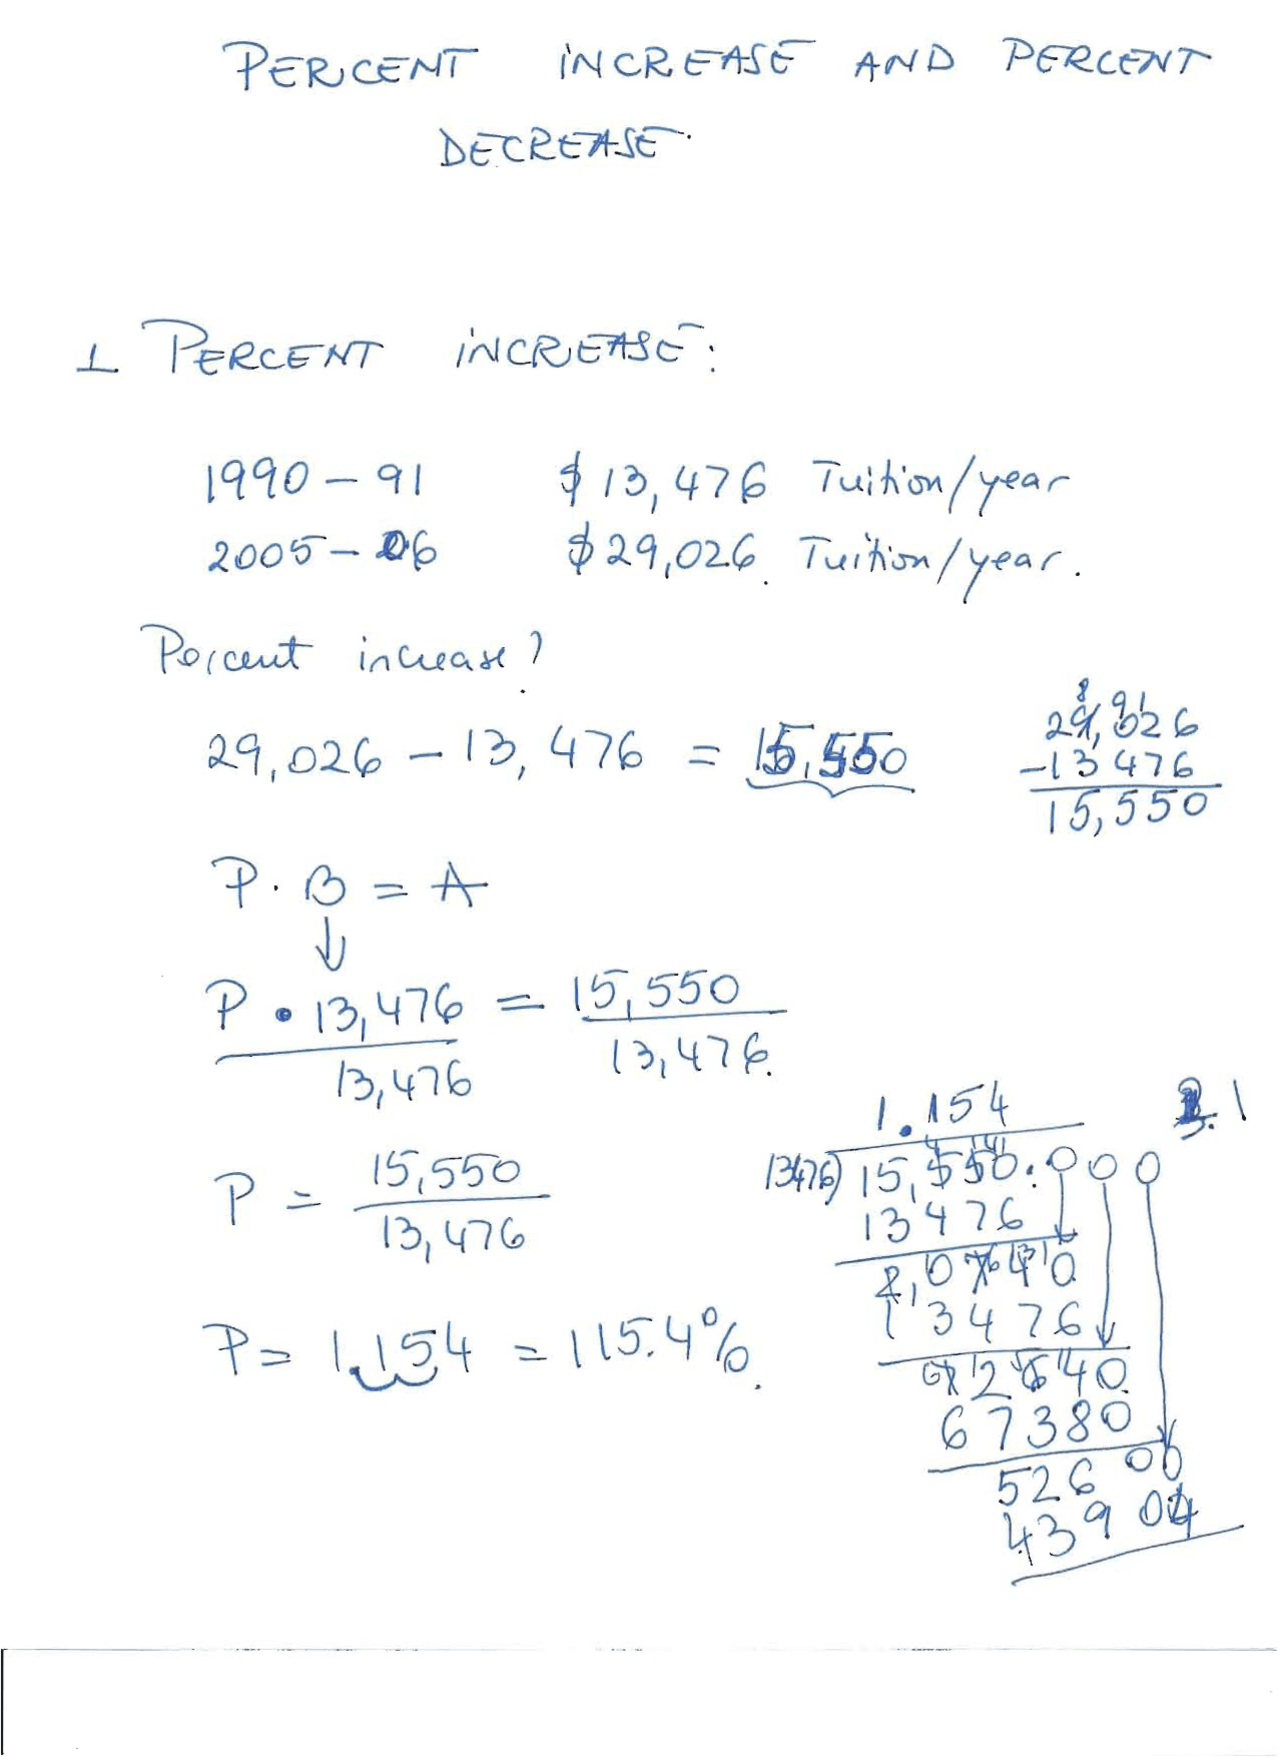 PERCENT INCREASE AND PERCENT
DECREASE.
1 PERCENT INCREASE:
1990 - 91 $ 13,476 Tuition/year
2005 - 06 $ 29,026. Tuition/year.
Percent increase?
29,026 - 13,476 = 15,550
29,026
-13 476
15,550
P. B = A
P • 13,476 = 15,550
13,476 13,476.
P = 15,550
13,476
P = 1.154 = 115.4%.
1.154
13476) 15,550.000
13 476
2,0740
1 3476
67380
526 00
439 04